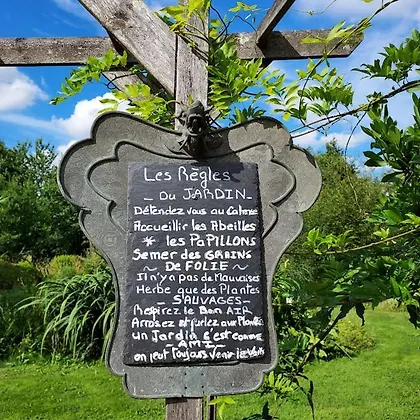 Les Règles
- DU JARDIN -
Détendez vous au Calme
Accueillir les Abeilles
* les PAPILLONS
Semer des GRAINS
~ DE FOLIE ~
Il n'y a pas de Mauvaises
Herbe que des Plantes
- SAUVAGES -
Respirez le Bon AIR
Arrosez et parlez aux Plantes
un Jardin c'est comme
- AMI -
on peut toujours venir le voir